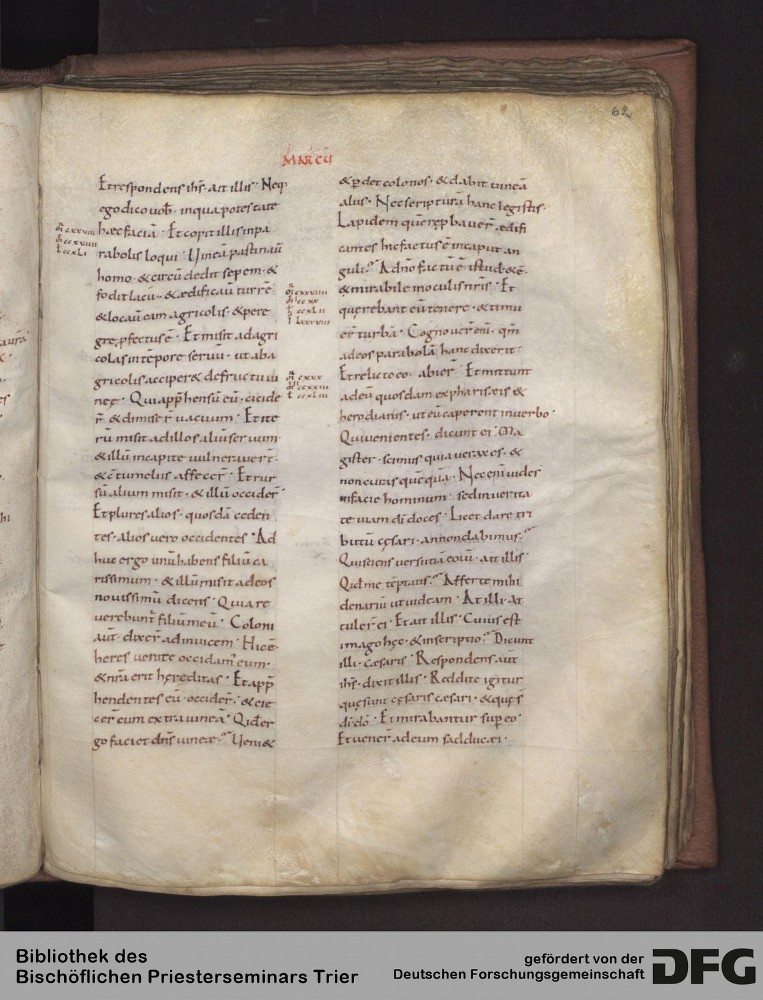 62
MARCU
Et respondens ihs · ait illis · Neq;
ego dico uob̄ · in qua potestate
haec faciā · Et coepit illis in pa
rabolis loqui · Uineā pastinauit
homo · & circū dedit sepem · &
fodit lacū · & ędificauit turrē ·
& locauit eam agricolis · & pere
gre profectus ē · Et misit ad agri
colas in tēpore seruū · ut ab a
gricolis acciper& de fructu ui
neę · Qui app̄hensū eū · cecide
r̄ & dimiser̄ uacuum · Et ite
rū misit ad illos aliū seruum ·
& illū in capite uulnerauer̄t ·
& cōtumeliis affecer̄ · Et rur
sū alium misit · & illū occider̄ ·
Et plures alios · quosdā ceden
tes · alios uero occidentes · Ad
huc ergo unū habens filiū ca
rissimum · & illū misit ad eos
nouissimū dicens · Quia re
uerebunt̄ filiū meū · Coloni
aut̄ · dixer̄ ad inuicem · Hic ē ·
heres uenite occidam̄ eum ·
& nr̄a erit hęreditas · Et app̄
hendentes eū · occider̄ · & eie
cer̄ eum extra uineā · Quid er
go faciet dn̄s uineae · Ueni&
& p̱det colonos · & dabit uineā
aliis · Nec scripturā hanc legistis ·
Lapidem quē rep̱bauer̄ ędifi
cantes hic factus ē in caput an
guli · A dn̄o factū ē istud · & ē ·
& mirabile in oculis nr̄is · Et
querebant eū tenere · & timu
er̄ turbā · Cognouer̄ eni · qm̄
ad eos parabolā hanc dixerit ·
Et relicto eo · abier̄ · Et mittunt
ad eū quosdam ex phariseis &
herodianis · ut eū caperent in uerbo ·
Qui uenientes · dicunt ei · Ma
gister · scimus quia uerax es · &
non curas quēquā · Nec eni uides
in facie hominum · sed in uerita
te uiam dī doces · Licet dare tri
butū cęsari · an non dabimus ·
Qui sciens uersutiā eoru · ait illis ·
Quid me tēptatis · Afferte mihi
denariū ut uideam · At illi at
tuler̄ ei · Et ait illis · Cuius est
imago hęc · & inscriptio · Dicunt
illi · caesaris · Respondens aut̄
ihs · dixit illis · Reddite igitur
quę sunt cęsaris caesari · & quę s̄
dī dō · Et mirabantur sup eo ·
Et uener̄ ad eum sadducęi ·
Bibliothek des
Bischöflichen Priesterseminars Trier
gefördert von der
Deutschen Forschungsgemeinschaft
DFG